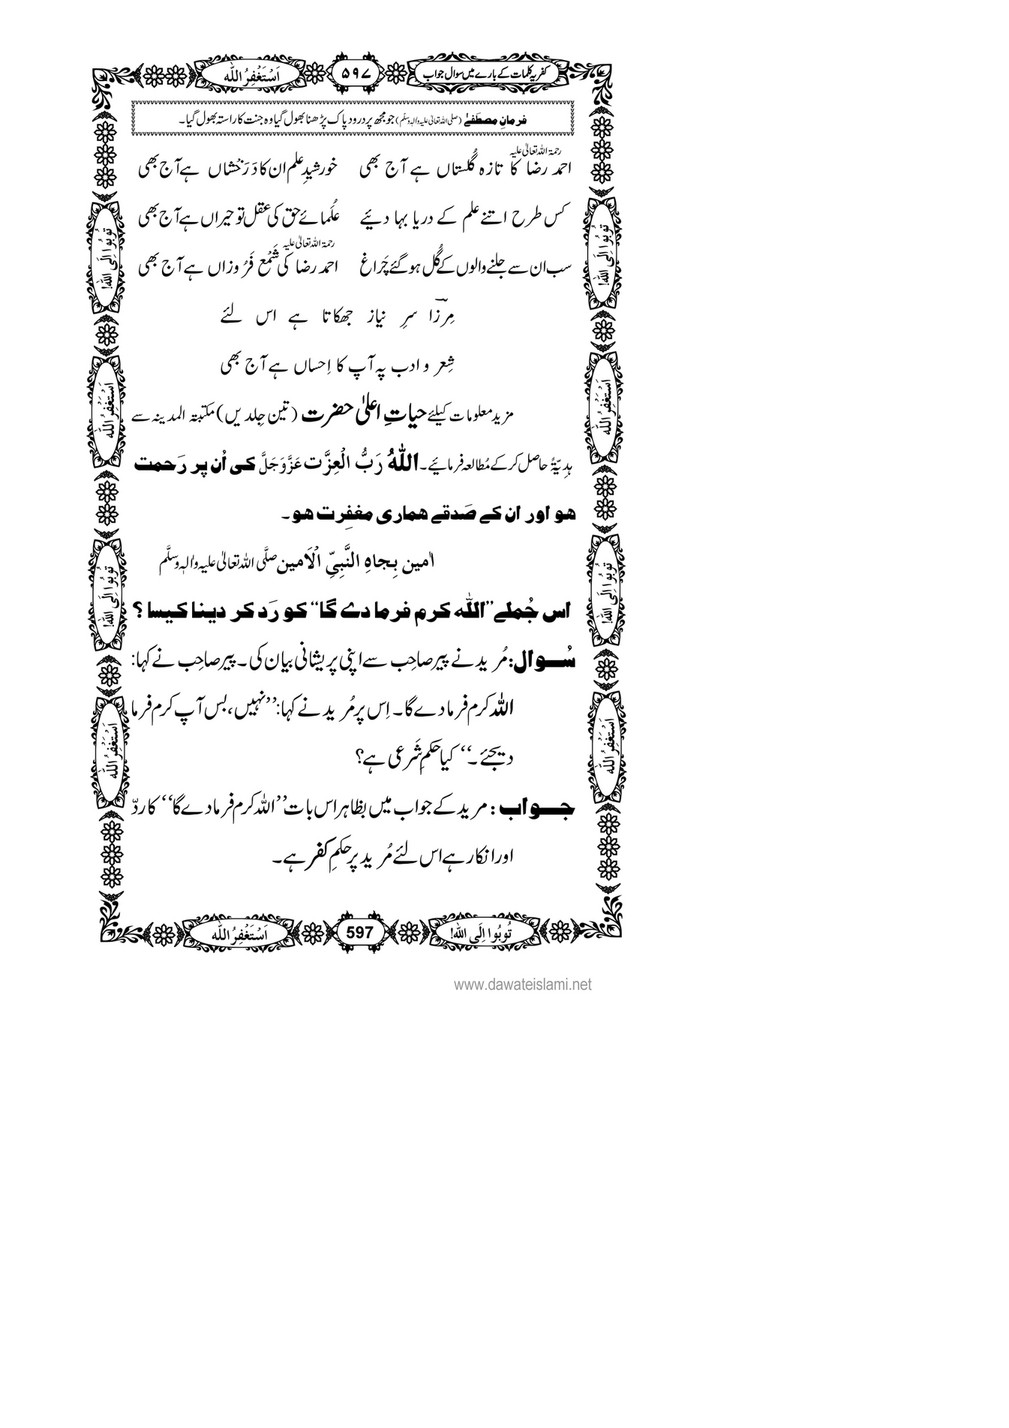 کفریہ کلمات کے بارے میں سوال جواب ۵۹۷ اَسْتَغْفِرُ اللّٰہ
فرمانِ مصطَفٰے (صلی اللہ تعالیٰ علیہ والہٖ وسلّم) جو مجھ پر درود پاک پڑھنا بھول گیا وہ جنت کا راستہ بھول گیا۔
احمد رضا رحمۃ اللہ تعالیٰ علیہ کا تازہ گُلستاں ہے آج بھی خورشیدِ علم ان کا دَرَخشاں ہے آج بھی
کس طرح اتنے علم کے دریا بہا دئیے عُلَمائے حق کی عقل تو حیراں ہے آج بھی
سب ان سے جلنے والوں کے گُل ہو گئے چَراغ احمد رضا رحمۃ اللہ تعالیٰ علیہ کی شَمْعِ فَرُوزاں ہے آج بھی
مِرزاؔ سرِ نیاز جھکاتا ہے اس لئے
شِعر و ادب پہ آپ کا اِحساں ہے آج بھی
مزید معلومات کیلئے حیاتِ اعلیٰ حضرت (تین جِلدیں) مکتبۃ المدینہ سے
ہدِیَّۃً حاصل کر کے مُطالعہ فرمائیے۔ اللّٰہُ رَبُّ الْعِزَّت عَزَّوَجَلَّ کی اُن پر رَحمت
ہو اور ان کے صَدقے ہماری مغفِرت ہو۔
اٰمین بِجاہِ النَّبِیِّ الْاَمین صلَّی اللہ تعالیٰ علیہ واٰلہٖ وسلَّم
اس جُملے ’’اللّٰہ کرم فرما دے گا‘‘ کو رَد کر دینا کیسا؟
سُوال: مُرید نے پیر صاحِب سے اپنی پریشانی بیان کی۔ پیر صاحِب نے کہا:
اللہ کرم فرما دے گا۔ اِس پر مُرید نے کہا: ’’نہیں، بس آپ کرم فرما
دیجئے۔‘‘ کیا حکمِ شَرعی ہے؟
جواب: مرید کے جواب میں بظاہر اس بات ’’اللہ کرم فرما دے گا‘‘ کا ردّ
اور انکار ہے اس لئے مُرید پر حکمِ کفر ہے۔
تُوبُوا اِلَی اللہ! اَسْتَغْفِرُ اللّٰہ تُوبُوا اِلَی اللہ! اَسْتَغْفِرُ اللّٰہ
تُوبُوا اِلَی اللہ! اَسْتَغْفِرُ اللّٰہ تُوبُوا اِلَی اللہ! اَسْتَغْفِرُ اللّٰہ
تُوبُوا اِلَی اللہ! 597 اَسْتَغْفِرُ اللّٰہ
www.dawateislami.net